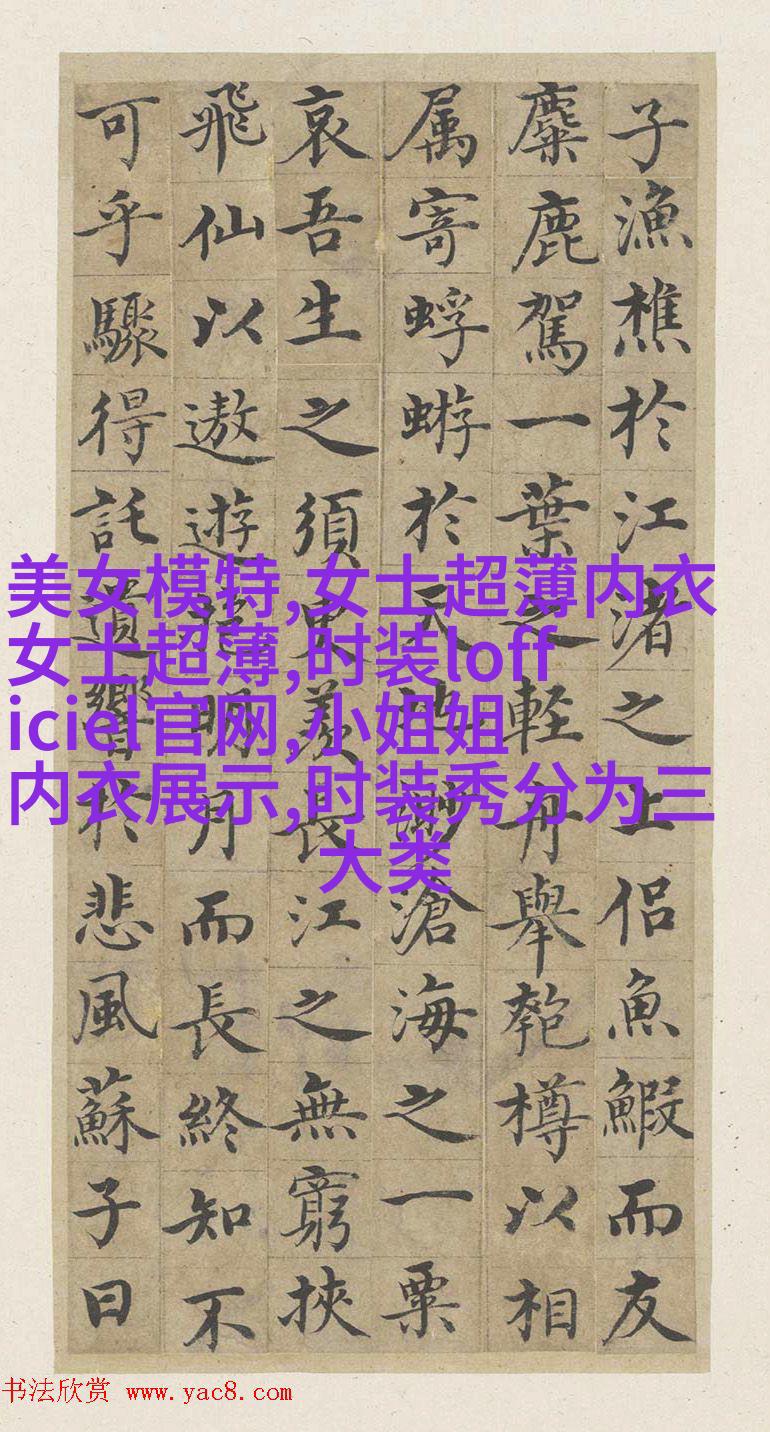 子漁樵於江渚之上侣魚鰕而友
麋鹿駕一葉之輕舟舉匏樽以相
属寄蜉蝣於天地渺滄海之一粟
哀吾生之須臾羨長江之無窮挾
飛仙以遨遊抱明月而長終知不
可乎驟得託遺響於悲風蘇子曰
美女模特,女士超薄内衣
女士超薄,时装loff
iciel官网,小姐姐
内衣展示,时装秀分为三
大类
书法欣赏 www.yac8.com